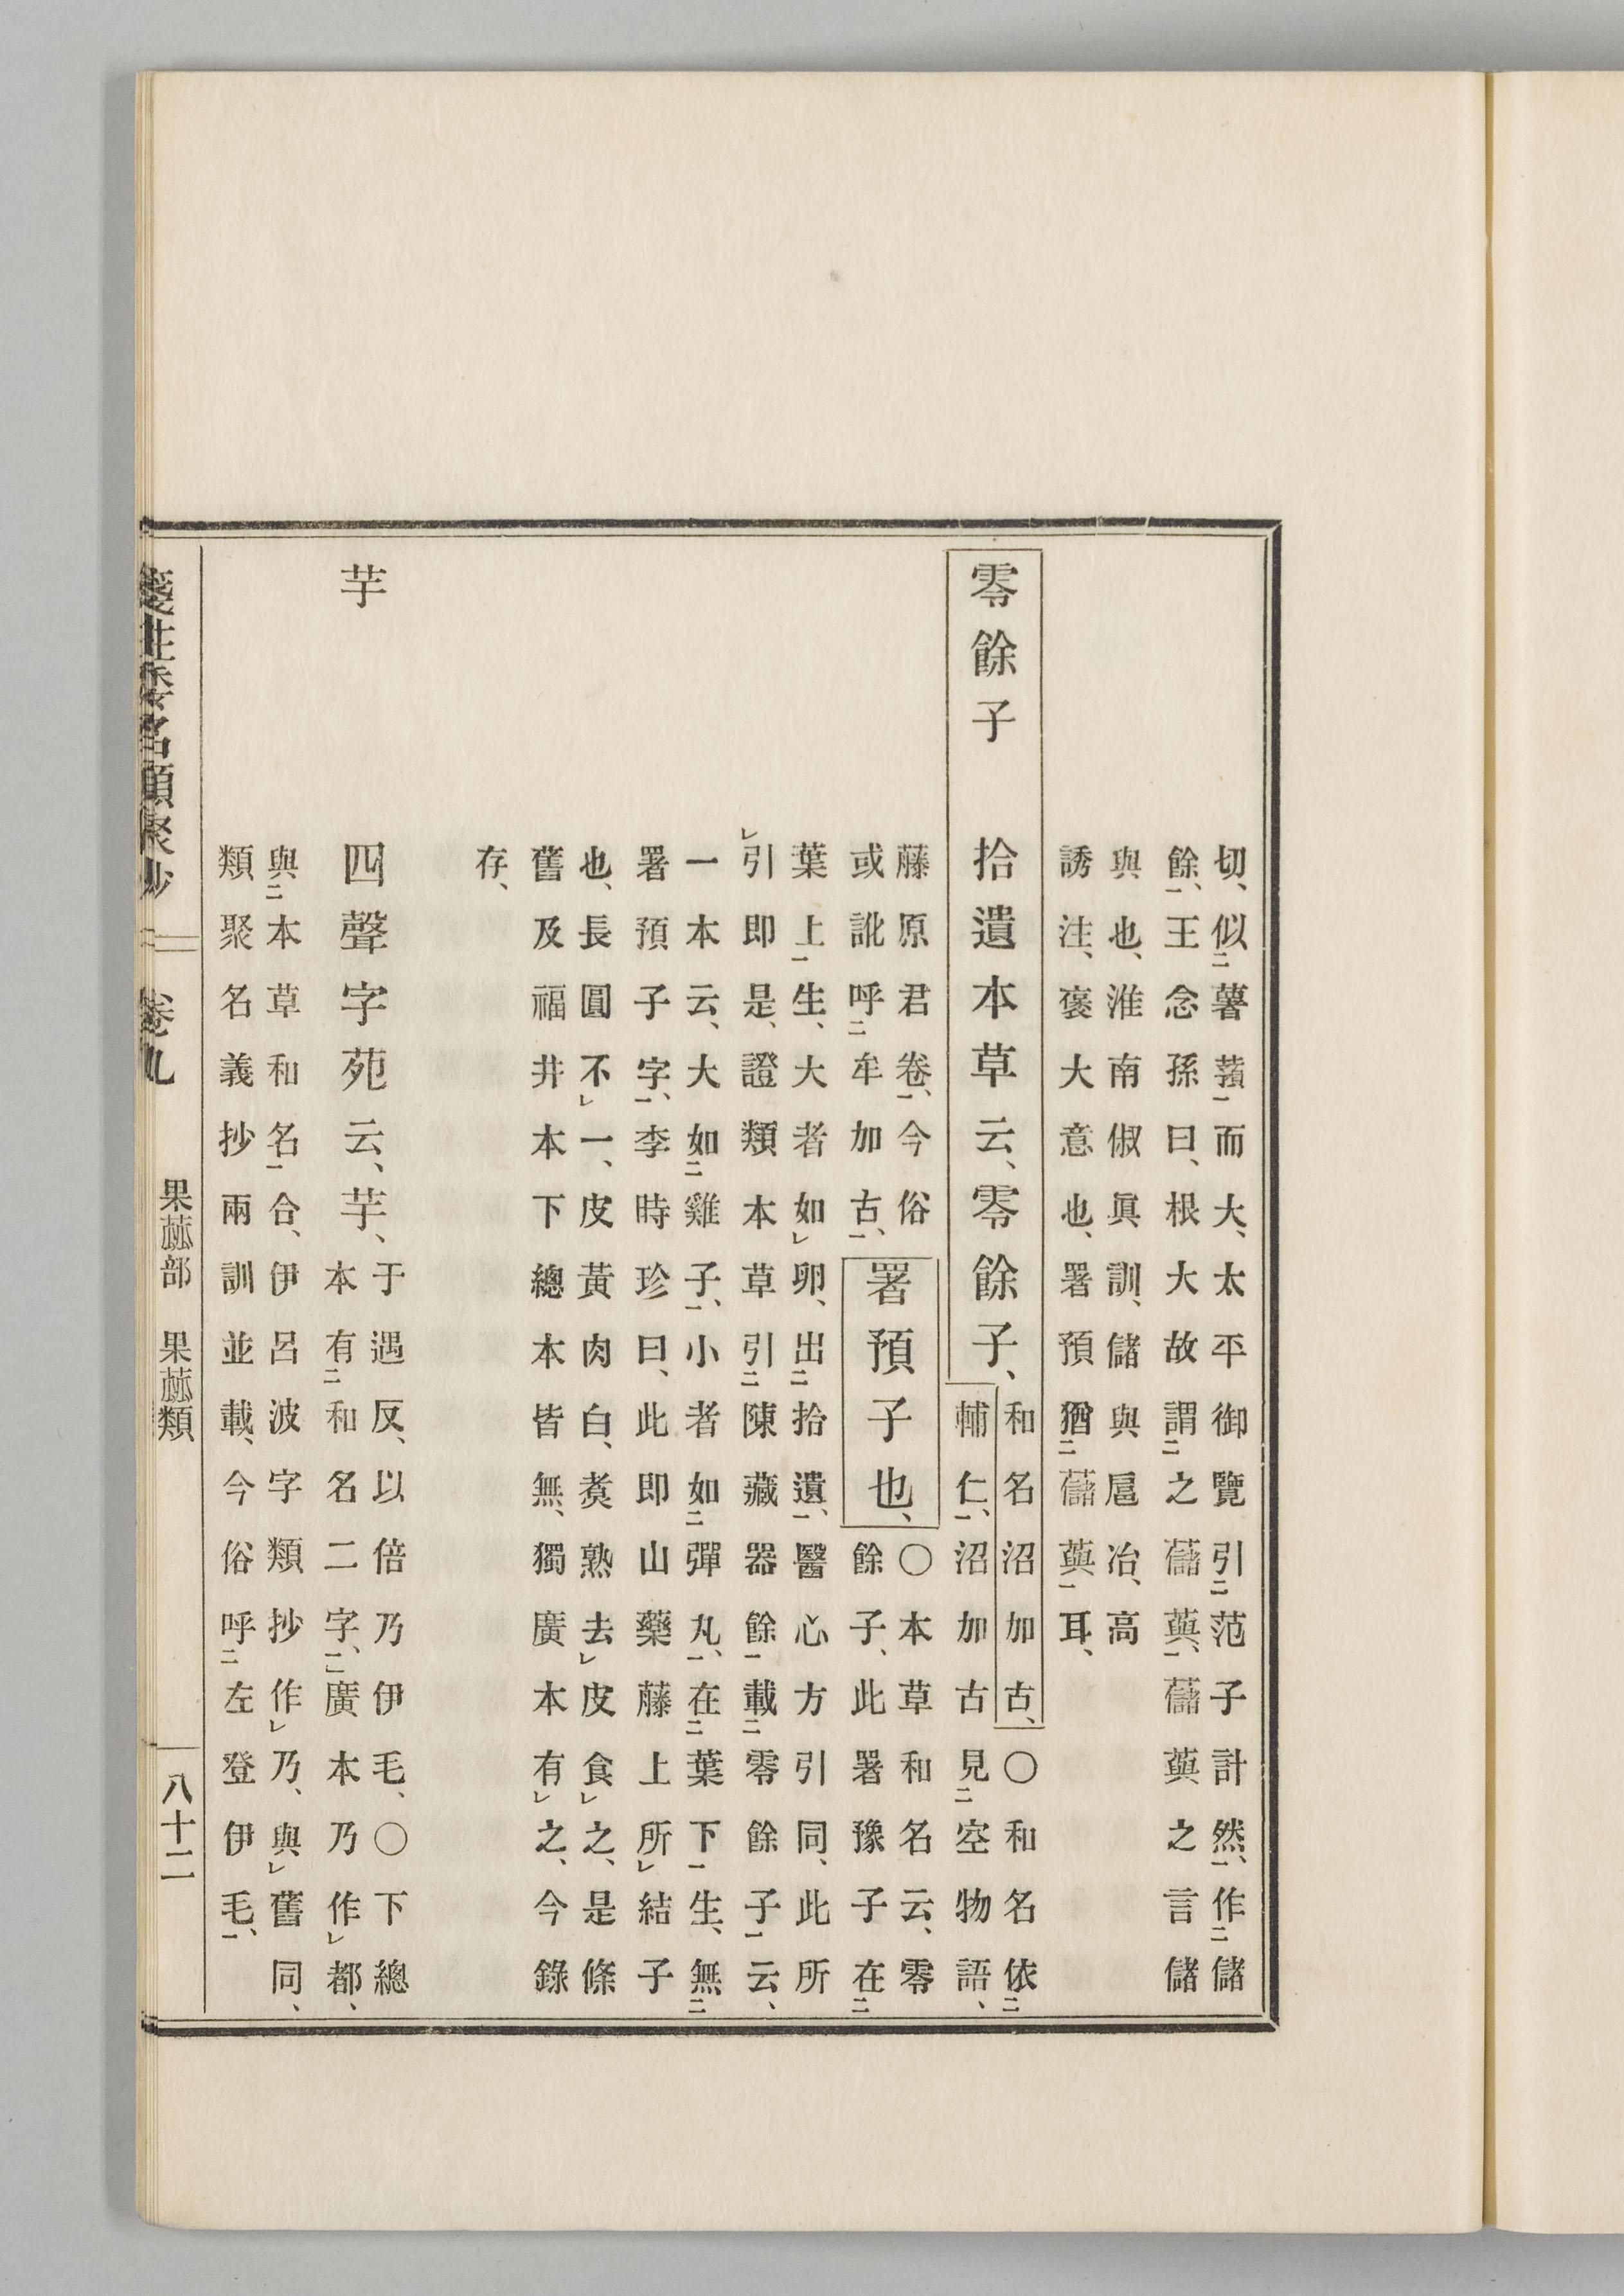 切、似二薯蕷一而大、太平御覽引二范子計然一、作二儲
餘一、王念孫曰、根大故謂二之藷藇一、藷藇之言儲
與也、淮南俶眞訓、儲與扈冶、高
誘注、褒大意也、署預猶二藷藇一耳、
零餘子 拾遺本草云、零餘子、和名沼加古、〇和名依二
輔仁一、沼加古見二空物語、
藤原君卷一、今俗
或訛呼二牟加古一、
署預子也、〇本草和名云、零
餘子、此署豫子在二
葉上一生、大者如レ卵、出二拾遺一、醫心方引同、此所
レ引即是、證類本草引二陳藏器餘一載二零餘子一云、
一本云、大如二雞子一、小者如二彈丸一、在二葉下一生、無二
署預子字一、李時珍曰、此即山藥藤上所レ結子
也、長圓不レ一、皮黃肉白、煑熟去レ皮食レ之、是條
舊及福井本下總本皆無、獨廣本有レ之、今錄
存、
芋 四聲字苑云、芋、于遇反、以倍乃伊毛、〇下總
本有二和名二字一、廣本乃作レ都、
與二本草和名一合、伊呂波字類抄作レ乃、與レ舊同、
類聚名義抄兩訓並載、今俗呼二左登伊毛一、
箋注倭名類聚抄 卷九 果蓏部 果蓏類 八十二